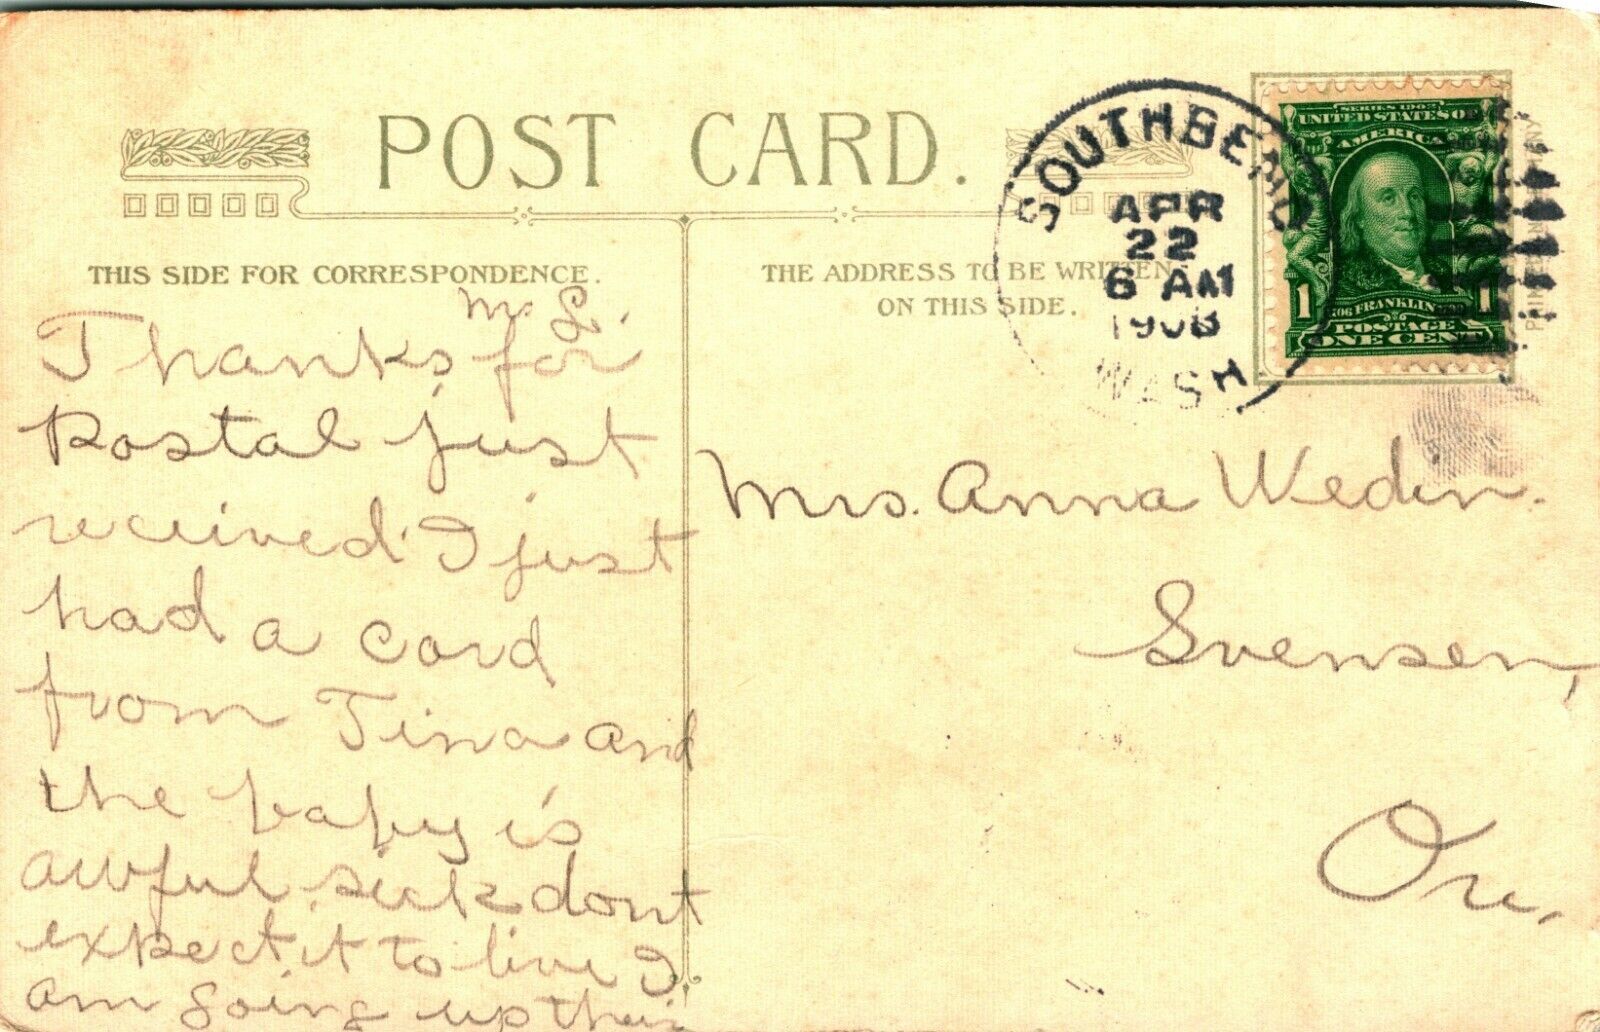 POST CARD.
THIS SIDE FOR CORRESPONDENCE.
THE ADDRESS TO BE WRITTEN
ON THIS SIDE.
SOUTH BEND
APR
22
6 AM
1908
WASH
SERIES 1902
UNITED STATES OF
AMERICA
1706 FRANKLIN 1790
POSTAGE
1 ONE CENT 1
L.
Thanks for
Postal just
received I just
had a card
from Tina and
the baby is
awful sick dont
expect it to live I
am going up
Mrs. Anna Wedin.
Svensen,
Ore.